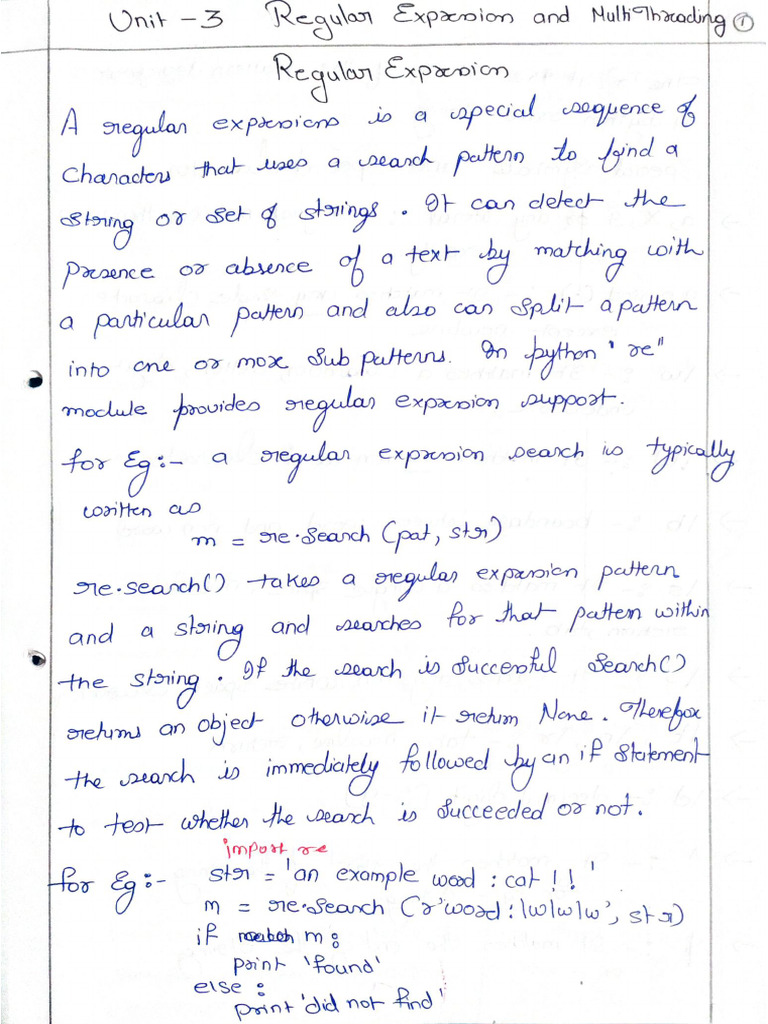 Unit - 3 Regular Expression and MultiThreading ①
Regular Expression
A regular expressions is a special sequence of
Characters that uses a search pattern to find a
string or set of strings. It can detect the
presence or absence of a text by matching with
a particular pattern and also can split a pattern
into one or more sub patterns. In python "re"
module provides regular expression support.
for Eg:- a regular expression search is typically
written as
m = re.search (pat, str)
re.search() takes a regular expression pattern
and a string and searches for that pattern within
the string. If the search is successful search()
returns an object otherwise it return None. Therefore
the search is immediately followed by an if statement
to test whether the search is succeeded or not.
import re
for Eg:- str = 'an example word : cat !! '
m = re.search (r'word : \w\w\w', str)
if m:
print 'found'
else :
print 'did not find'